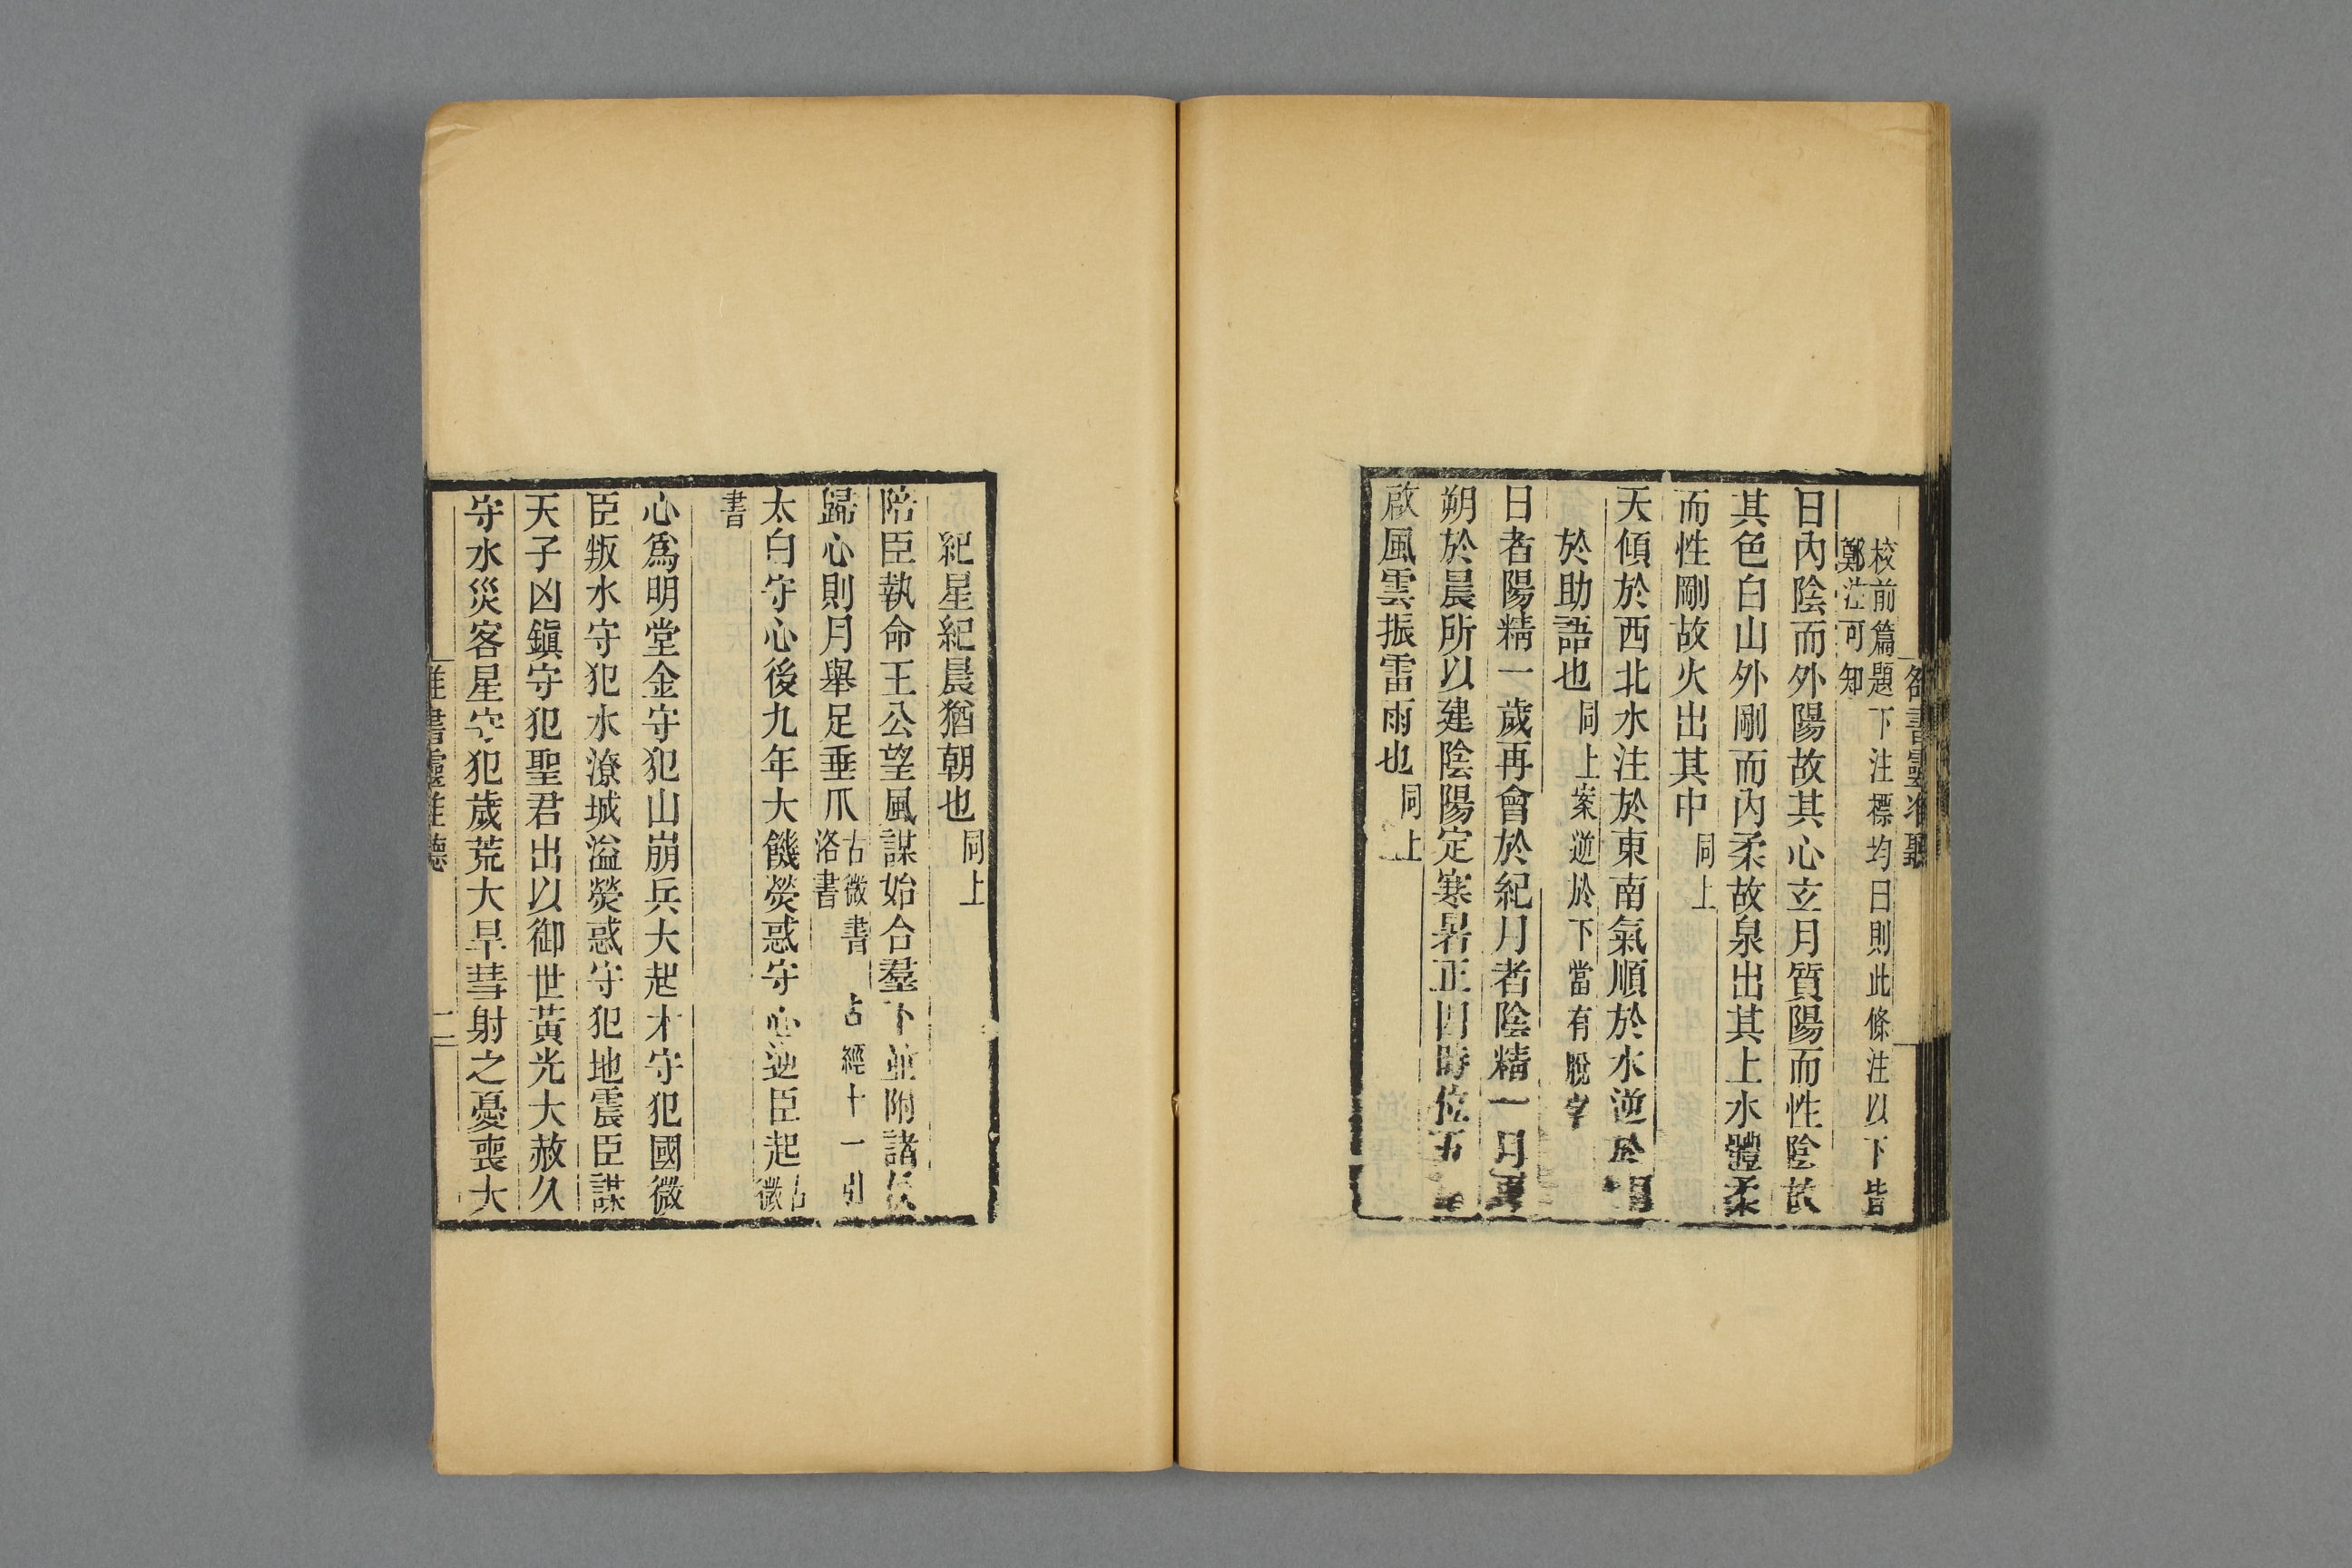 校前篇題下注標均曰則此條注以下皆
鄭注可知
日內陰而外陽故其心立月質陽而性陰故
其色白山外剛而內柔故泉出其上水體柔
而性剛故火出其中同上
天傾於西北水注於東南氣順於水逆於
於助語也同上案逆於下當有脫字
日者陽精一歲再會於紀月者陰精一月
朔於晨所以建陰陽定寒暑正四時位五
啟風雲振雷雨也同上
紀星紀晨猶朝也同上
陪臣執命王公望風謀始合羣下並附諸侯
歸心則月舉足垂爪古微書 占經十一引
洛書
太白守心後九年大饑熒惑守心逆臣起古
微
書
心爲明堂金守犯山崩兵大起木守犯國微
臣叛水守犯水潦城溢熒惑守犯地震臣謀
天子凶鎮守犯聖君出以御世黃光大赦久
守水災客星守犯歲荒大旱彗射之憂喪大